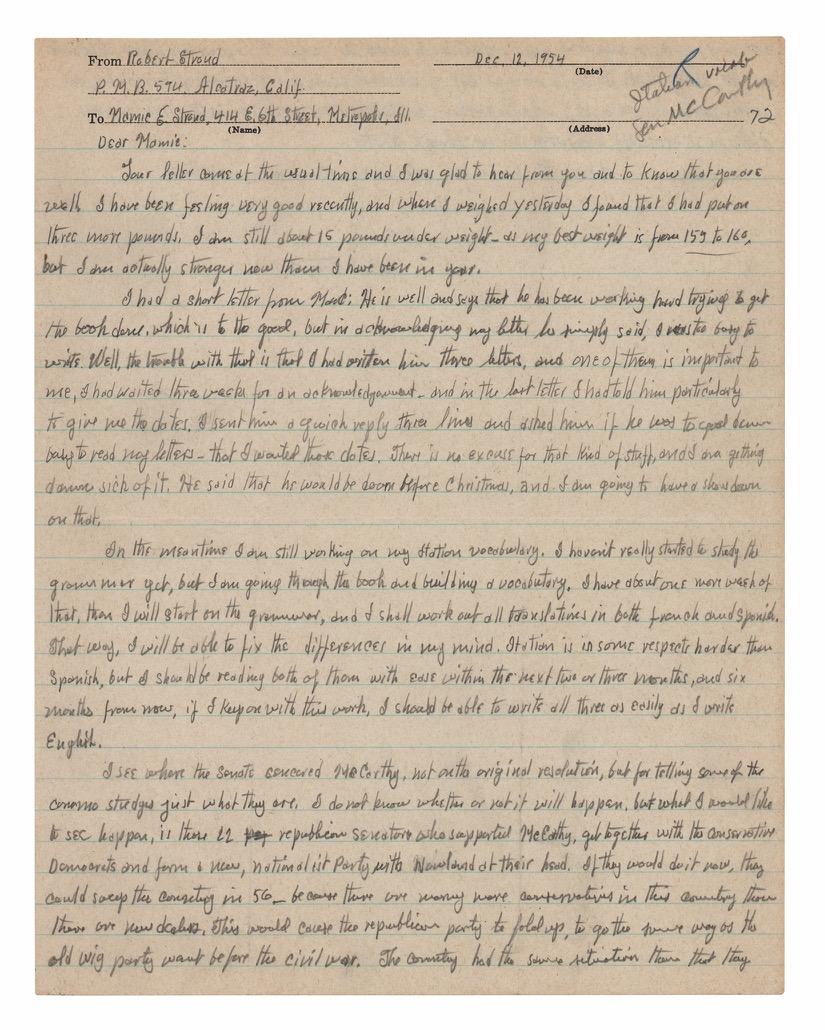 From Robert Stroud Dec. 12, 1954
(Date)
P.M.B. 594, Alcatraz, Calif. Italian vocab
Sen McCarthy
To Mamie E Stroud, 414 E. 6th Street, Metropolis, Ill. 72
(Name) (Address)
Dear Mamie:
Your letter came at the usual time and I was glad to hear from you and to know that you are
well. I have been feeling very good recently, and when I weighed yesterday I found that I had put on
three more pounds. I am still about 15 pounds under weight - as my best weight is from 159 to 160,
but I am actually stronger now than I have been in year.
I had a short letter from Marc; He is well and says that he has been working hard trying to get
the book done, which is to the good, but in acknowledging my letter he simply said, I was too busy to
write. Well, the trouble with that is that I had written him three letters, and one of them is important to
me, I had waited three weeks for an acknowledgement - and in the last letter I had told him particularly
to give me the dates. I sent him a quick reply three lines and asked him if he was to good damn
busy to read my letters - that I wanted those dates. There is no excuse for that kind of stuff, and I am getting
damn sick of it. He said that he would be down before Christmas, and I am going to have a showdown
on that.
In the meantime I am still working on my Italian vocabulary. I haven't really started to study the
grammar yet, but I am going through the book and building a vocabutary. I have about one more week of
that, then I will start on the grammar, and I shall work out all translatines in both french and Spanish.
That way, I will be able to fix the differences in my mind. Italian is in some respects harder than
Spanish, but I should be reading both of them with ease within the next two or three months, and six
months from now, if I keep on with this work, I should be able to write all three as easily as I write
English.
I see where the Senate cencared McCarthy, not on the original resolution, but for telling some of the
just what they are. I do not know whether or not it will happen, but what I would like
to see happen, is those 22 republican senators who supported McCathy, get together with the conservative
Democrats and form a new, nationalist Party with Nowland at their head. If they would do it now, they
could sweep the country in 56 - because there are many more conservatives in this country than
there are new dealers. This would cause the republican party to fold up, to go the same way as the
old wig party want before the civil war. The country had the same situation then that they